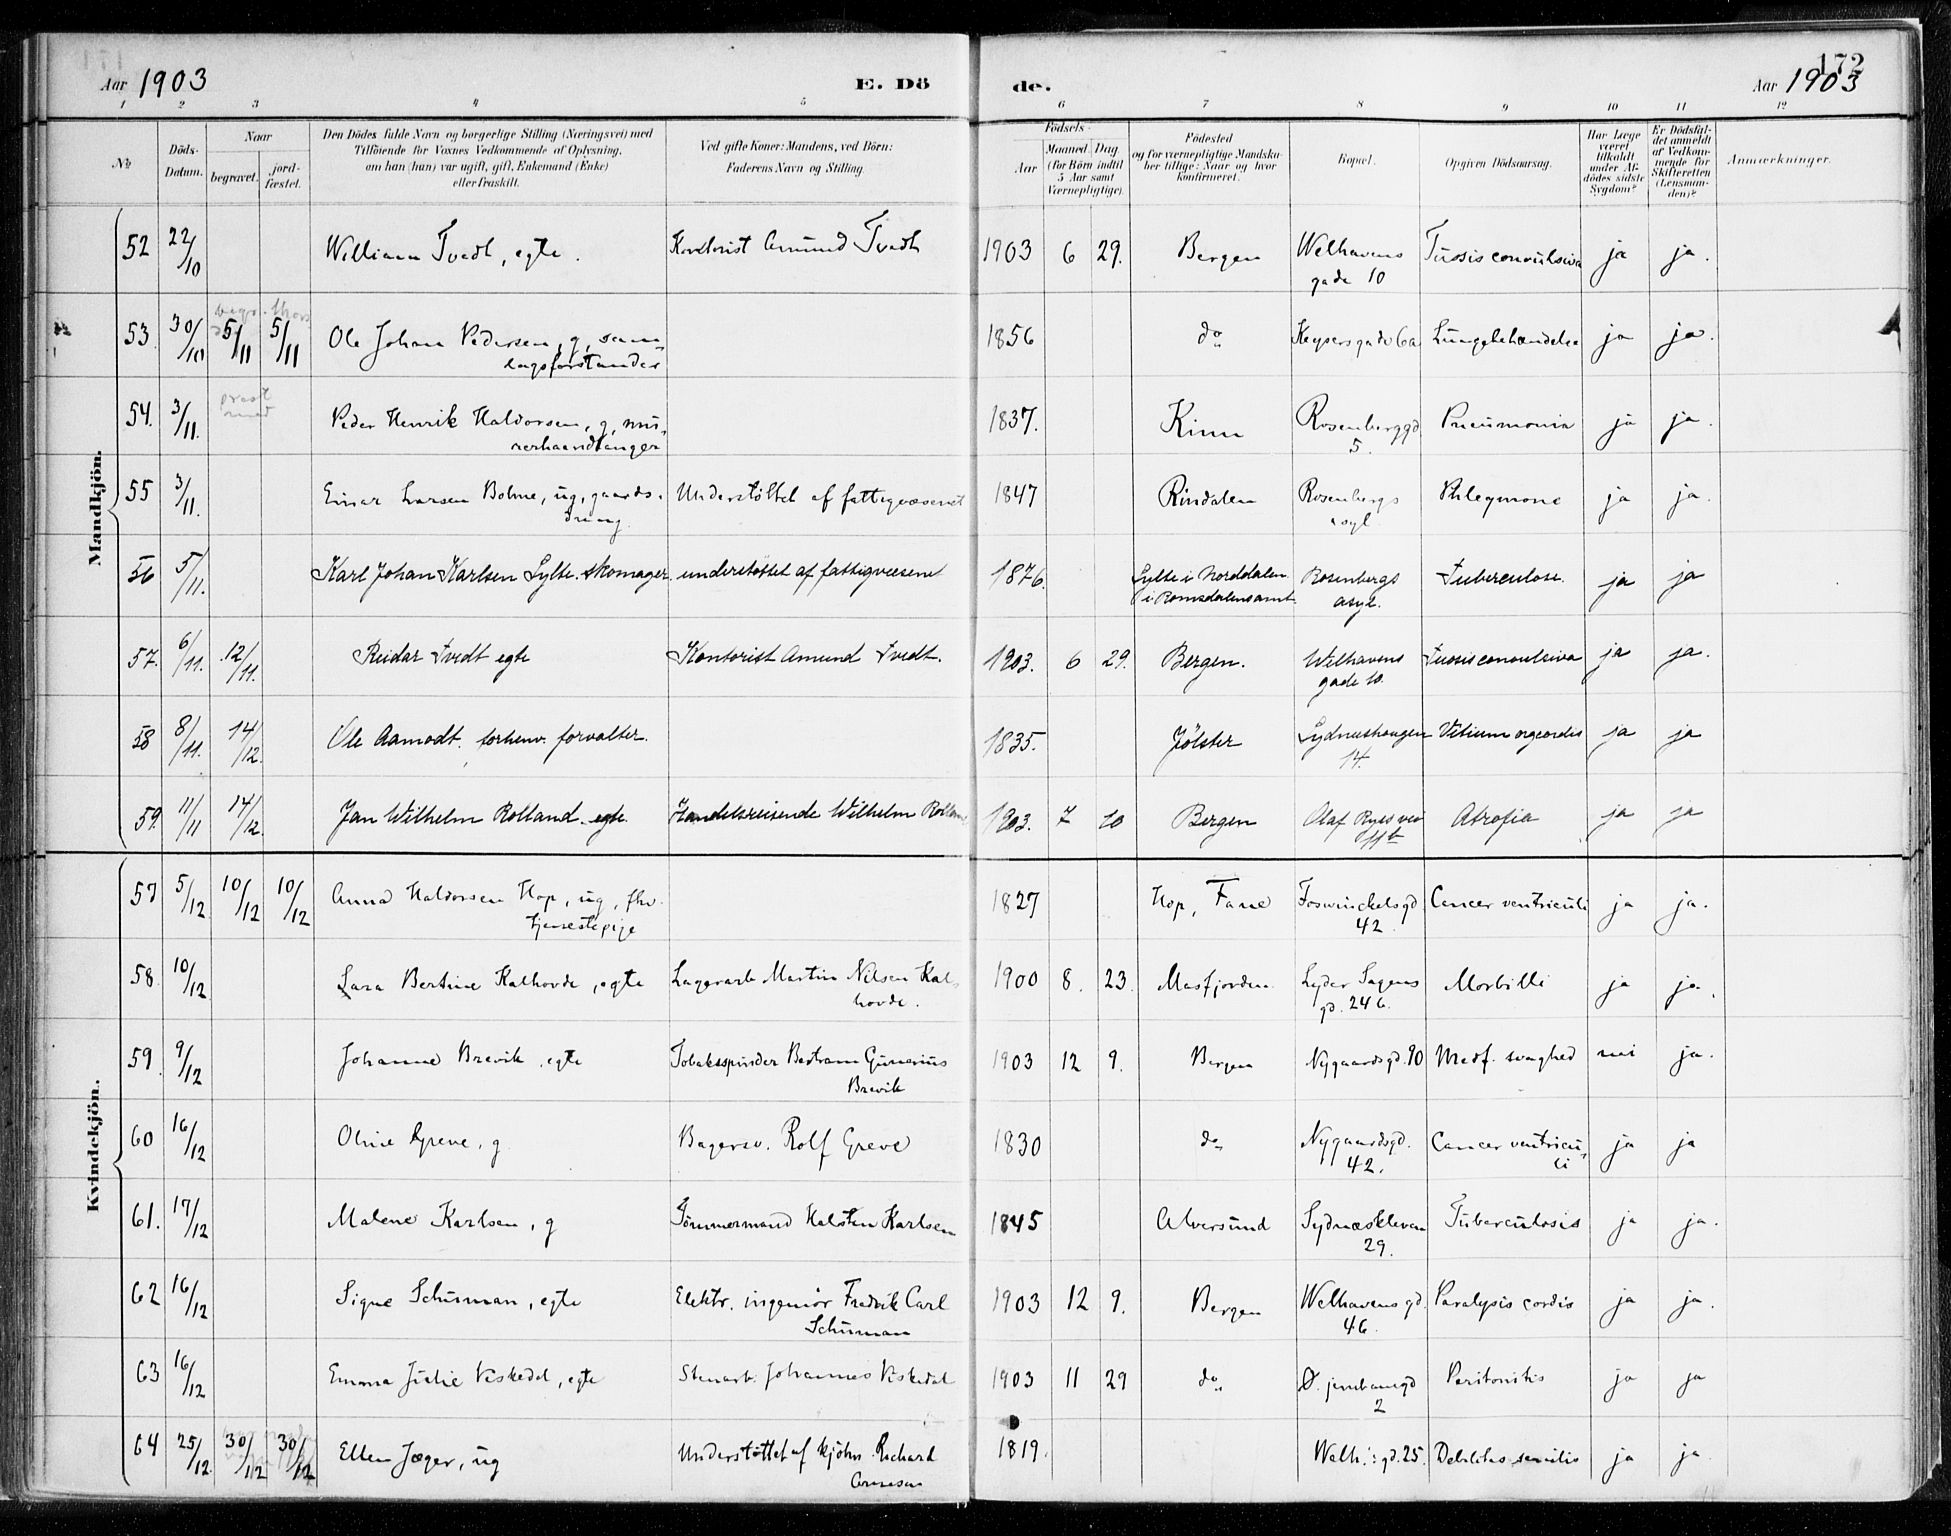 171
172
Aar 1903
E. Dö
de.
Aar 1903
1 2 3 4 5 6 7 8 9 10 11 12
No
Döds-Datum.
Naar
begravet.
jord-fæstet.
Den Dödes fulde Navn og borgerlige Stilling (Næringsvei) med
Tilföiende for Voxnes Vedkommende af Oplysning,
om han (hun) var ugift, gift, Enkemand (Enke)
eller fraskilt.
Ved gifte Koner: Mandens, ved Börn:
Faderens Navn og Stilling.
Födsels-
Aar
Maaned. Dag
(for Börn indtil
5 Aar samt
Værnepligtige).
Födested
og for værnepligtige Mandsku-
ber tillige: Naar og hvor
konfirmeret.
Bopæl.
Opgiven Dödsaarsag.
Har Læge
været
tilkaldt
under Af-
dödes sidste
Sygdom?
Er Dödsfal-
det anmeldt
af Vedkom-
mende for
Skifteretten
(Lensman-
den)?
Anmærkninger.
Mandkjön.
52 22/10 William Tvedt, egte. Kontorist Amund Tvedt 1903 6 29. Bergen Welhavens Tussis convulsiva ja ja.
gade 10
53 30/10 5/11 5/11 Ole Johan Pedersen, g, sam- 1856 do Keysersgade 6a Lungebetændelse ja ja.
lagsforstander
54. 3/11. prest
med
Peder Henrik Haldorsen, g, mu- 1837. Kinn Rosenberggd Pneumonia ja ja.
rerhaandlanger 5.
55 3/11. Einar Larsen Bolme, ug, gaards- Understöttet af fattigvæsenet 1847 Rindalen Rosenbergs Phlegmone ja ja.
dreng asyl
56 5/11. Karl Johan Karlsen Sylte. skomager. understöttet af fattigvæsenet 1876. Sylte i Norddalen Rosenbergs Tuberculose. ja ja
i Romsdalens amt. asyl.
57. 6/11. 12/11. Reidar Tvedt egte Kontorist Amund Tvedt. 1903. 6 29. Bergen. Welhavens Tussis convulsiva ja ja.
gade 10.
58 8/11. 14/12. Ole Aamodt. forhenv. forvalter. 1835. Jölster Sydneshaugen Vitium org cordis ja ja
14.
59. 11/11 14/12. Jan Wilhelm Rolland. egte. Handelsreisende Wilhelm Rolland 1903. 7 10 Bergen Olaf Ryes vei Atrofia ja ja
11b
Kvindekjön.
57 5/12 10/12 10/12 Anna Haldorsen Hop, ug, fhv. 1827 Hop, Fane Foswinckelsgd Cancer ventriculi ja ja.
tjenestepige 42
58. 10/12 Lara Bertine Kalhovde, egte Lagerarb Martin Nilsen Kal- 1900 8. 23. Masfjorden Lyder Sagens Morbilli ja ja.
hovde. gd. 24 b.
59. 9/12 Johanne Brevik, egte Tobaksspinder Bertram Gunerius 1903 12 9. Bergen Nygaardsgd. 90 Medf. svaghed nei ja.
Brevik
60 16/12 Oline Greve, g. Bagersv. Rolf Greve 1830 do Nygaardsgd. Cancer ventricu- ja ja
42. li
61. 17/12 Malene Karlsen, g Tömmermand Halsten Karlsen 1845 Alversund Sydnæskleven Tuberculosis ja ja.
29.
62 16/12 Signe Schuman, egte Elektr. ingeniör Fredrik Carl 1903 12 9. Bergen Welhavens gd. Paralysis cordis ja ja.
Schuman 46.
63 16/12 Emma Julie Viskedal, egte Stenarb. Johannes Viskedal 1903 11 29 do D. jernbanegd Peritonitis ja ja
2
64 25/12 30/12 30/12 Ellen Jæger, ug Understöttet af kjöbm Richard 1819. Welh.: gd. 25. Debilitas senilis ja ja